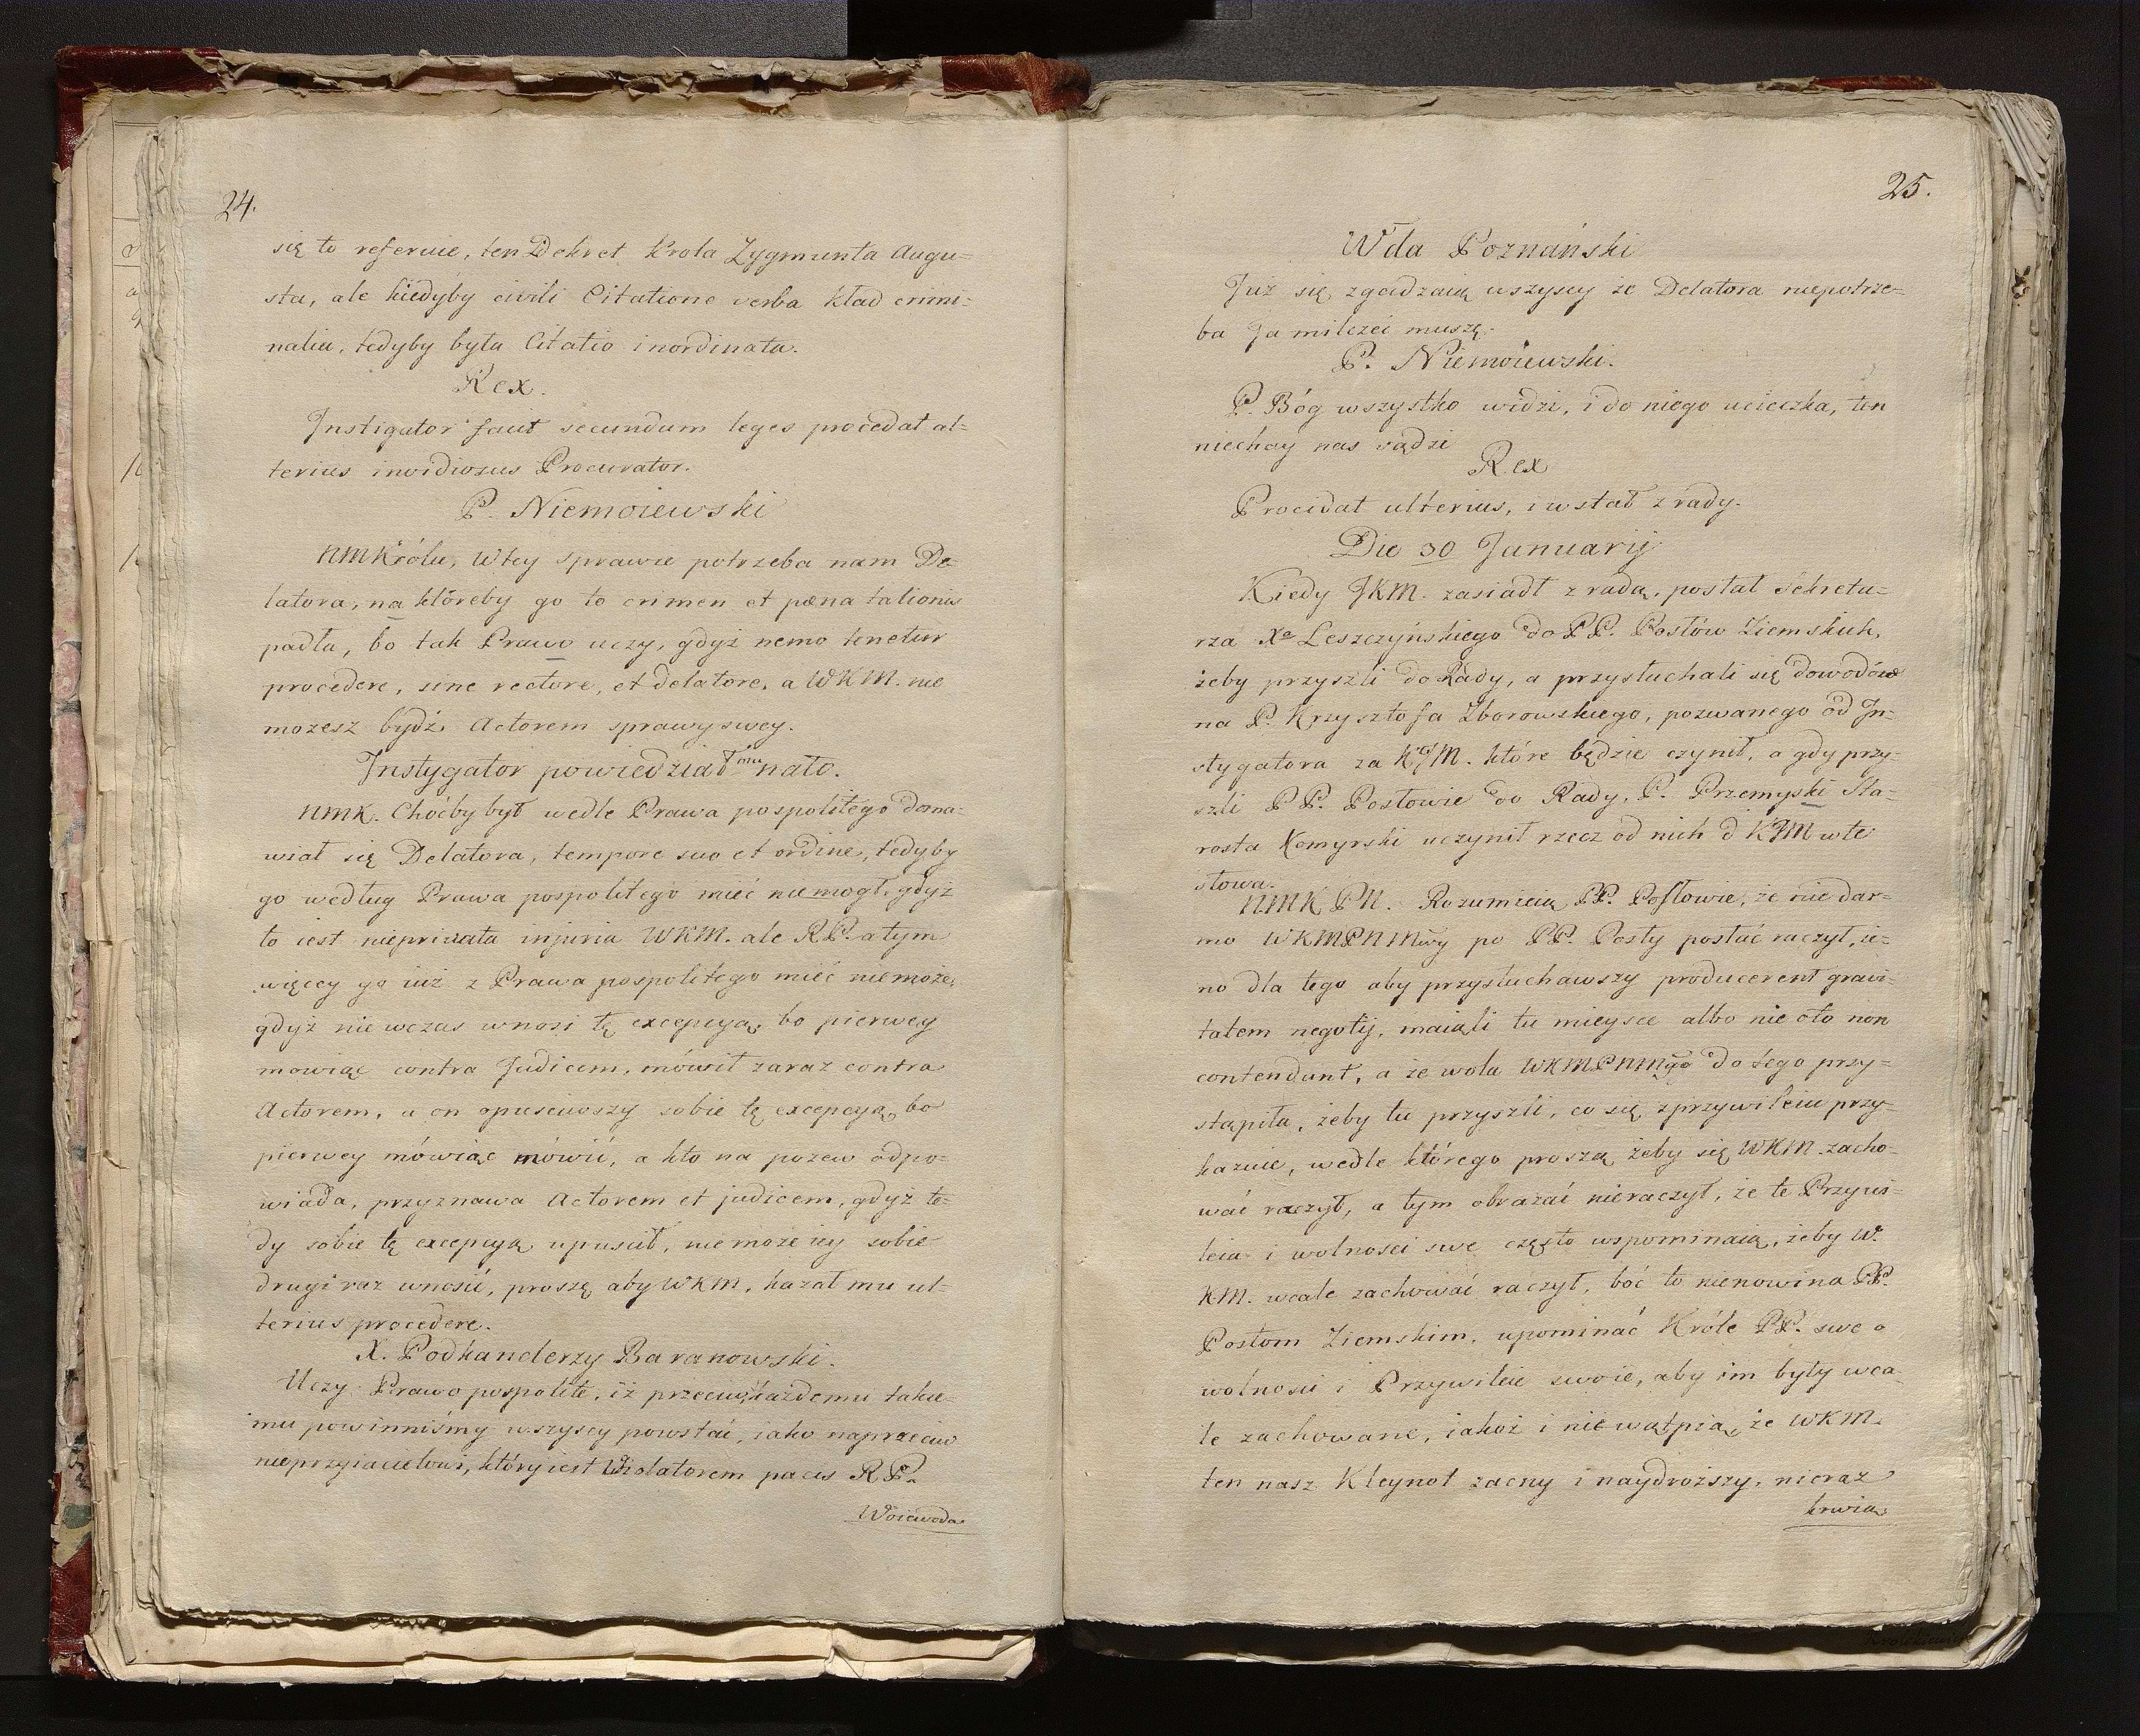 24.
się to referuie, ten Dekret Krola Zygmunta Augu=
sta, ale kiedyby civili Citatione verba kład crimi=
nalia, tedyby była Citatio inordinata.
Rex.
Instigator fecit secundum leges procedat al=
terius invidiosus Procurator.
P. Niemoiewski
NMKrólu, Wtey sprawie potrzeba nam De=
latora, na któreby go to crimen et pœna talionis
padła, bo tak Prawo uczy, gdyż nemo tenetur
procedere, sine rectore, et delatore, a WKM. nie
możesz bydź Actorem sprawy swey.
Instygator powiedział mu nato.
NMK. Choćby był wedle Prawa pospolitego doma=
wiał się Delatora, tempore suo et ordine, tedyby
go według Prawa pospolitego mieć niemogł, gdyż
to iest nieprivata injuria WKM. ale RP. a tym
więcey go iuż z Prawa pospolitego mieć niemoże,
gdyż nie wczas wnosi tę excepcyą, bo pierwey
mowiąc contra Judicem, mówił zaraz contra
Actorem, a on opusciwszy sobie tę excepcyą, bo
pierwey mówiąc mówić, a kto na pozew odpo=
wiada, przyznawa Actorem et judicem, gdyż te=
dy sobie tę excepcyą upuscił, niemoże iey sobie
drugi raz wnosić, proszę aby WKM. kazał mu ul=
terius procedere.
X. Podkanclerzy Baranowski.
Uczy Prawo pospolite, iż przeciw każdemu takie=
mu powinniśmy wszyscy powstać, iako naprzeciw
nieprzyiacielowi, który iest Violatorem pacis RP.
Woiewoda
25.
Wda Poznański
Już się zgadzaią wszyscy że Delatora niepotrze=
ba Ja milczeć muszę.
P. Niemoiewski.
P. Bóg wszystko widzi, i do niego ucieczka, ten
niechay nas sądzi
Rex
Procidat ulterius, i wstał z rady.
Die 30 Januarij
Kiedy JKM. zasiadł z radą, posłał Sekreta=
rza Xa Leszczyńskiego do PP. Posłów Ziemskich,
żeby przyszli do Rady, a przysłuchali się dowodów
na P. Krzysztofa Zborowskiego, pozwanego od In=
stygatora za KJM. które będzie czynił, a gdy przy=
szli PP. Posłowie do Rady, P. Przemyski Sta=
rosta Komyrski uczynił rzecz od nich d KJM w te
słowa.
NMK PN. Rozumieią PP. Posłowie, że nie dar=
mo WKMPNMwy po PP. Posły posłać raczył, ie=
no dla tego aby przysłuchawszy producerent gravi=
tatem negotij, maiąli tu mieysce albo nie oto non
contendunt, a że wola WKMPNMgo do tego przy=
stąpiła, żeby tu przyszli, co się z przywileiu przy=
kazuie, wedle którego proszą żeby się WKM. zacho=
wać raczył, a tym obrażać nieraczył, że te Przywi=
leia i wolnosci swe często wspominaią, żeby W.
KM. wcale zachować raczył, boć to nienowina PP.
Posłom Ziemskim, upominać Króle PP. swe o
wolnosci i Przywileie swoie, aby im były wca=
le zachowane, iakoż i nie wątpią, że WKM.
ten nasz Kleynot zacny i naydroższy, nieraz
krwią